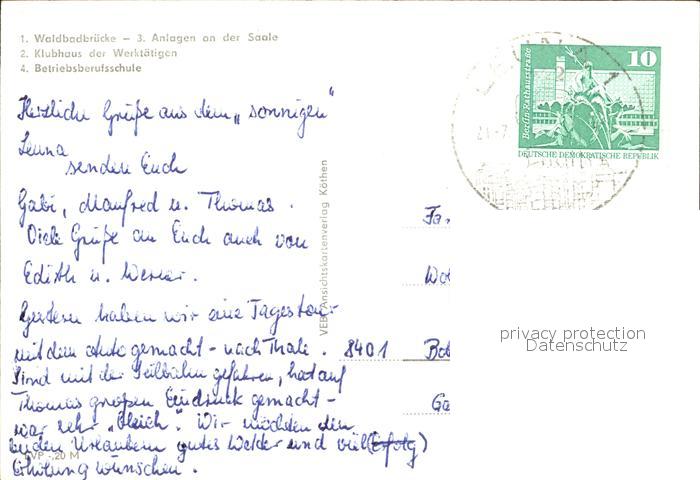 1. Waldbadbrücke – 3. Anlagen an der Saale
2. Klubhaus der Werktätigen
4. Betriebsberufsschule
Herzliche Grüße aus dem „sonnigen"
Leuna
senden Euch
Gabi, Manfred u. Thomas.
Viele Grüße an Euch auch von
Edith u. Werner.
Gestern haben wir eine Tagestour
mit dem Auto gemacht - nach Thale.
Sind mit der Seilbahn gefahren, hat auf
Thomas großen Eindruck gemacht -
war sehr „bleich". Wir möchten den
beiden Urlaubern gutes Wetter und viel (Erfolg)
Erholung wünschen.
VEB Ansichtskartenverlag Köthen
Berlin-Rathausstraße
10
DEUTSCHE DEMOKRATISCHE REPUBLIK
8401
privacy protection
Datenschutz